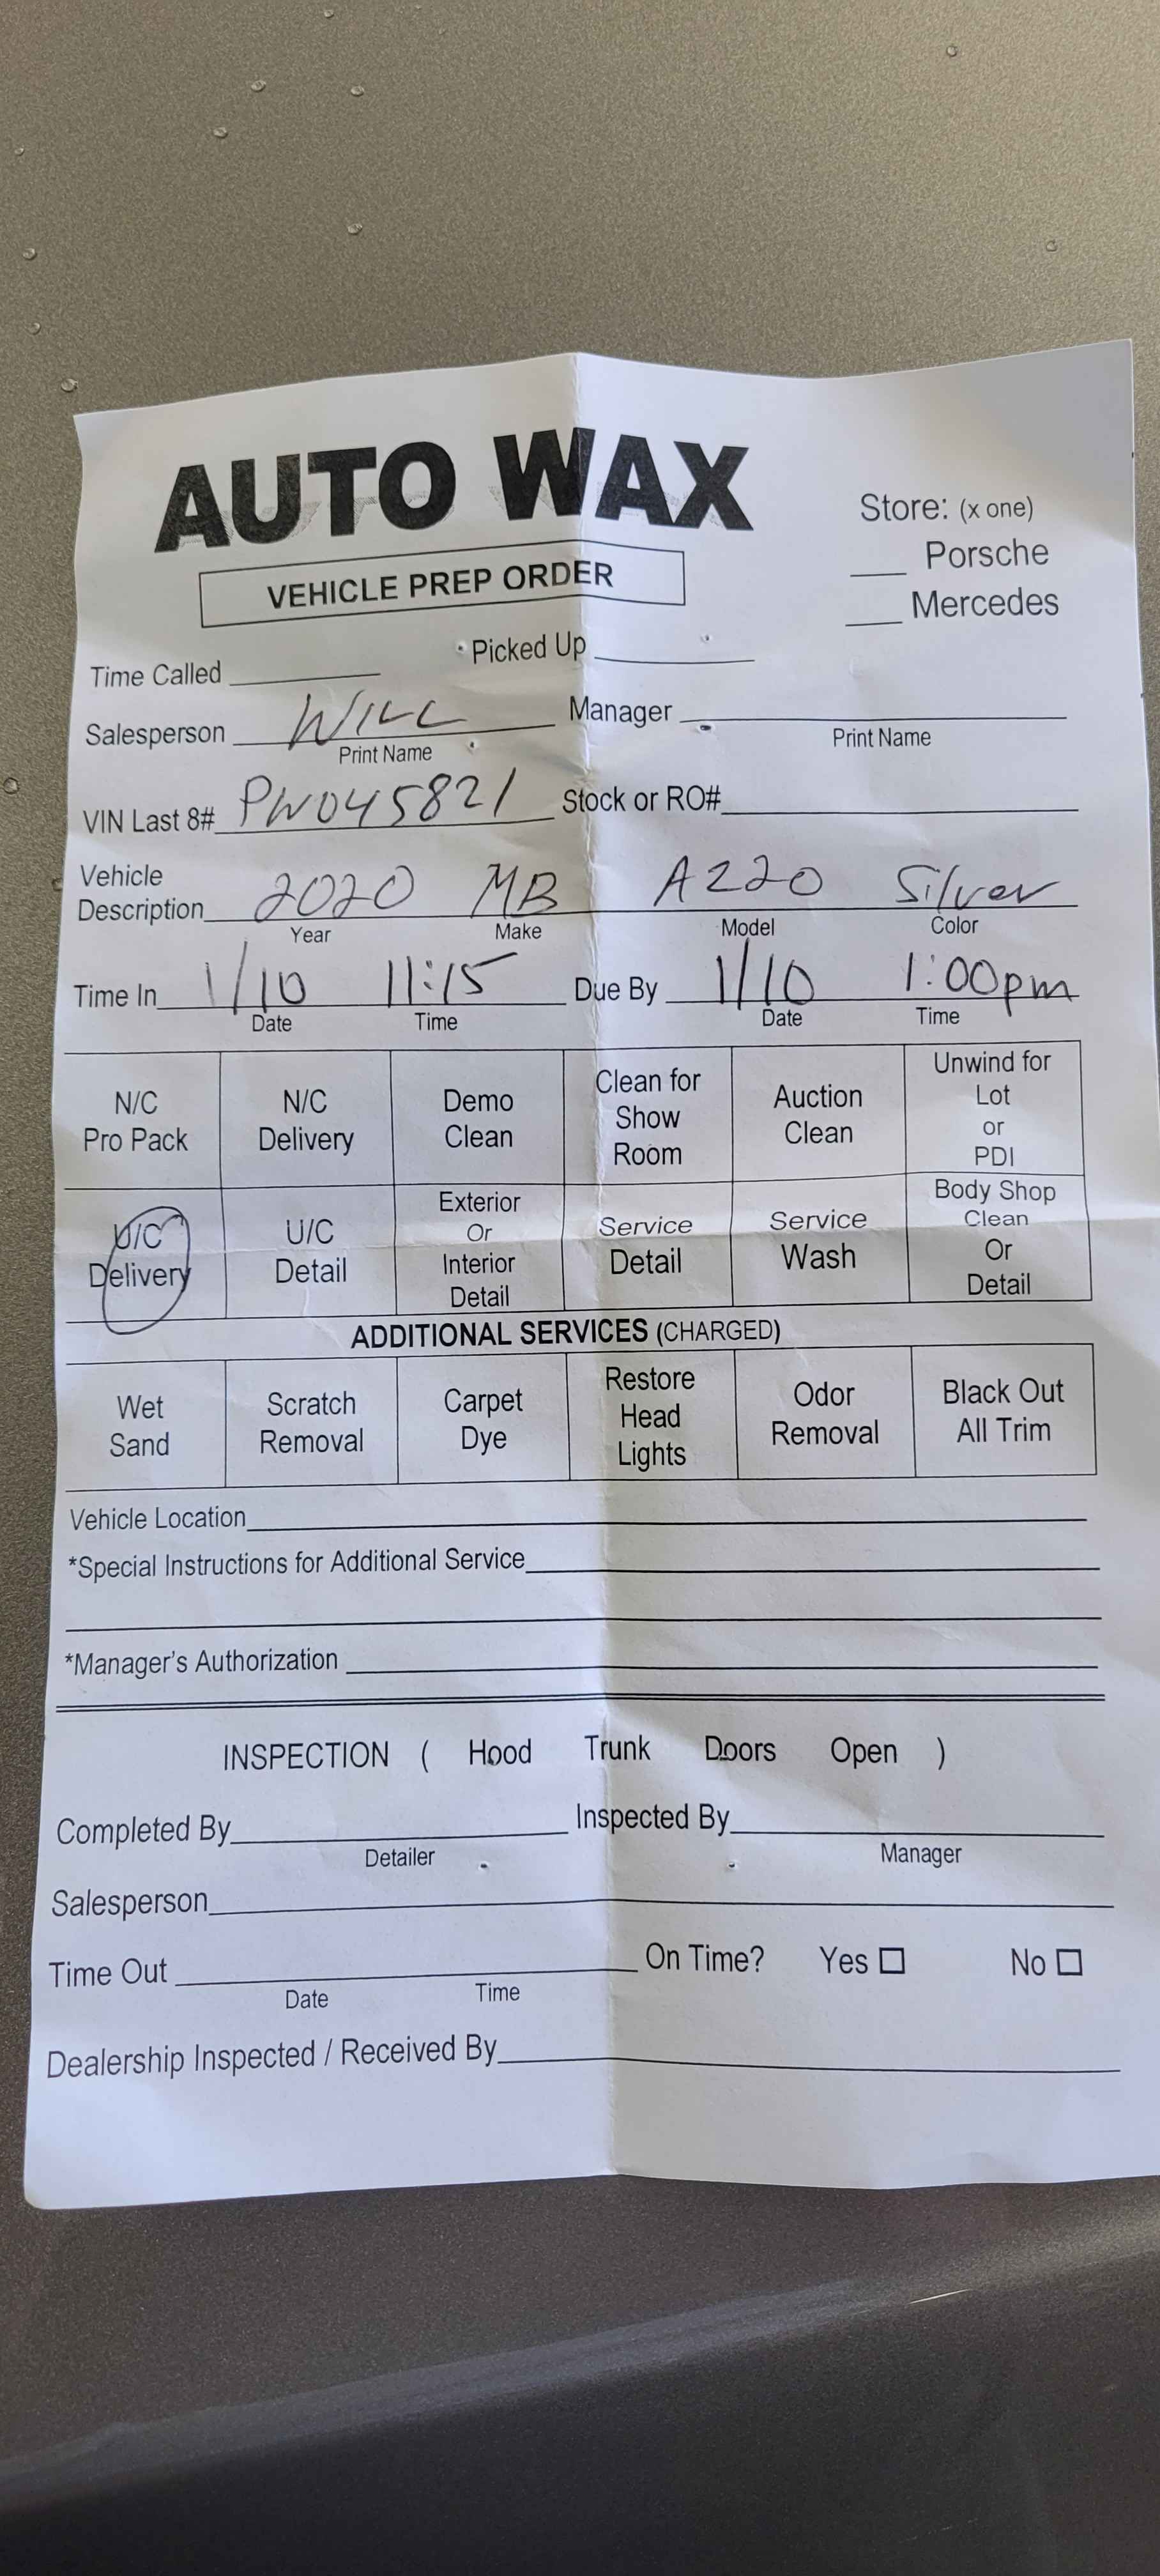 AUTO WAX
VEHICLE PREP ORDER
Store: (x one)
___ Porsche
___ Mercedes
Time Called ___ Picked Up ___
Salesperson WILL Manager ___
Print Name Print Name
VIN Last 8# PW045821 Stock or RO# ___
Vehicle
Description 2020 MB A220 Silver
Year Make Model Color
Time In 1/10 11:15 Due By 1/10 1:00pm
Date Time Date Time
N/C Pro Pack
N/C Delivery
Demo Clean
Clean for Show Room
Auction Clean
Unwind for Lot or PDI
U/C Delivery
U/C Detail
Exterior Or Interior Detail
Service Detail
Service Wash
Body Shop Clean Or Detail
ADDITIONAL SERVICES (CHARGED)
Wet Sand
Scratch Removal
Carpet Dye
Restore Head Lights
Odor Removal
Black Out All Trim
Vehicle Location ___
*Special Instructions for Additional Service ___
*Manager's Authorization ___
INSPECTION ( Hood Trunk Doors Open )
Completed By ___ Inspected By ___
Detailer Manager
Salesperson ___
Time Out ___ On Time? Yes ☐ No ☐
Date Time
Dealership Inspected / Received By ___